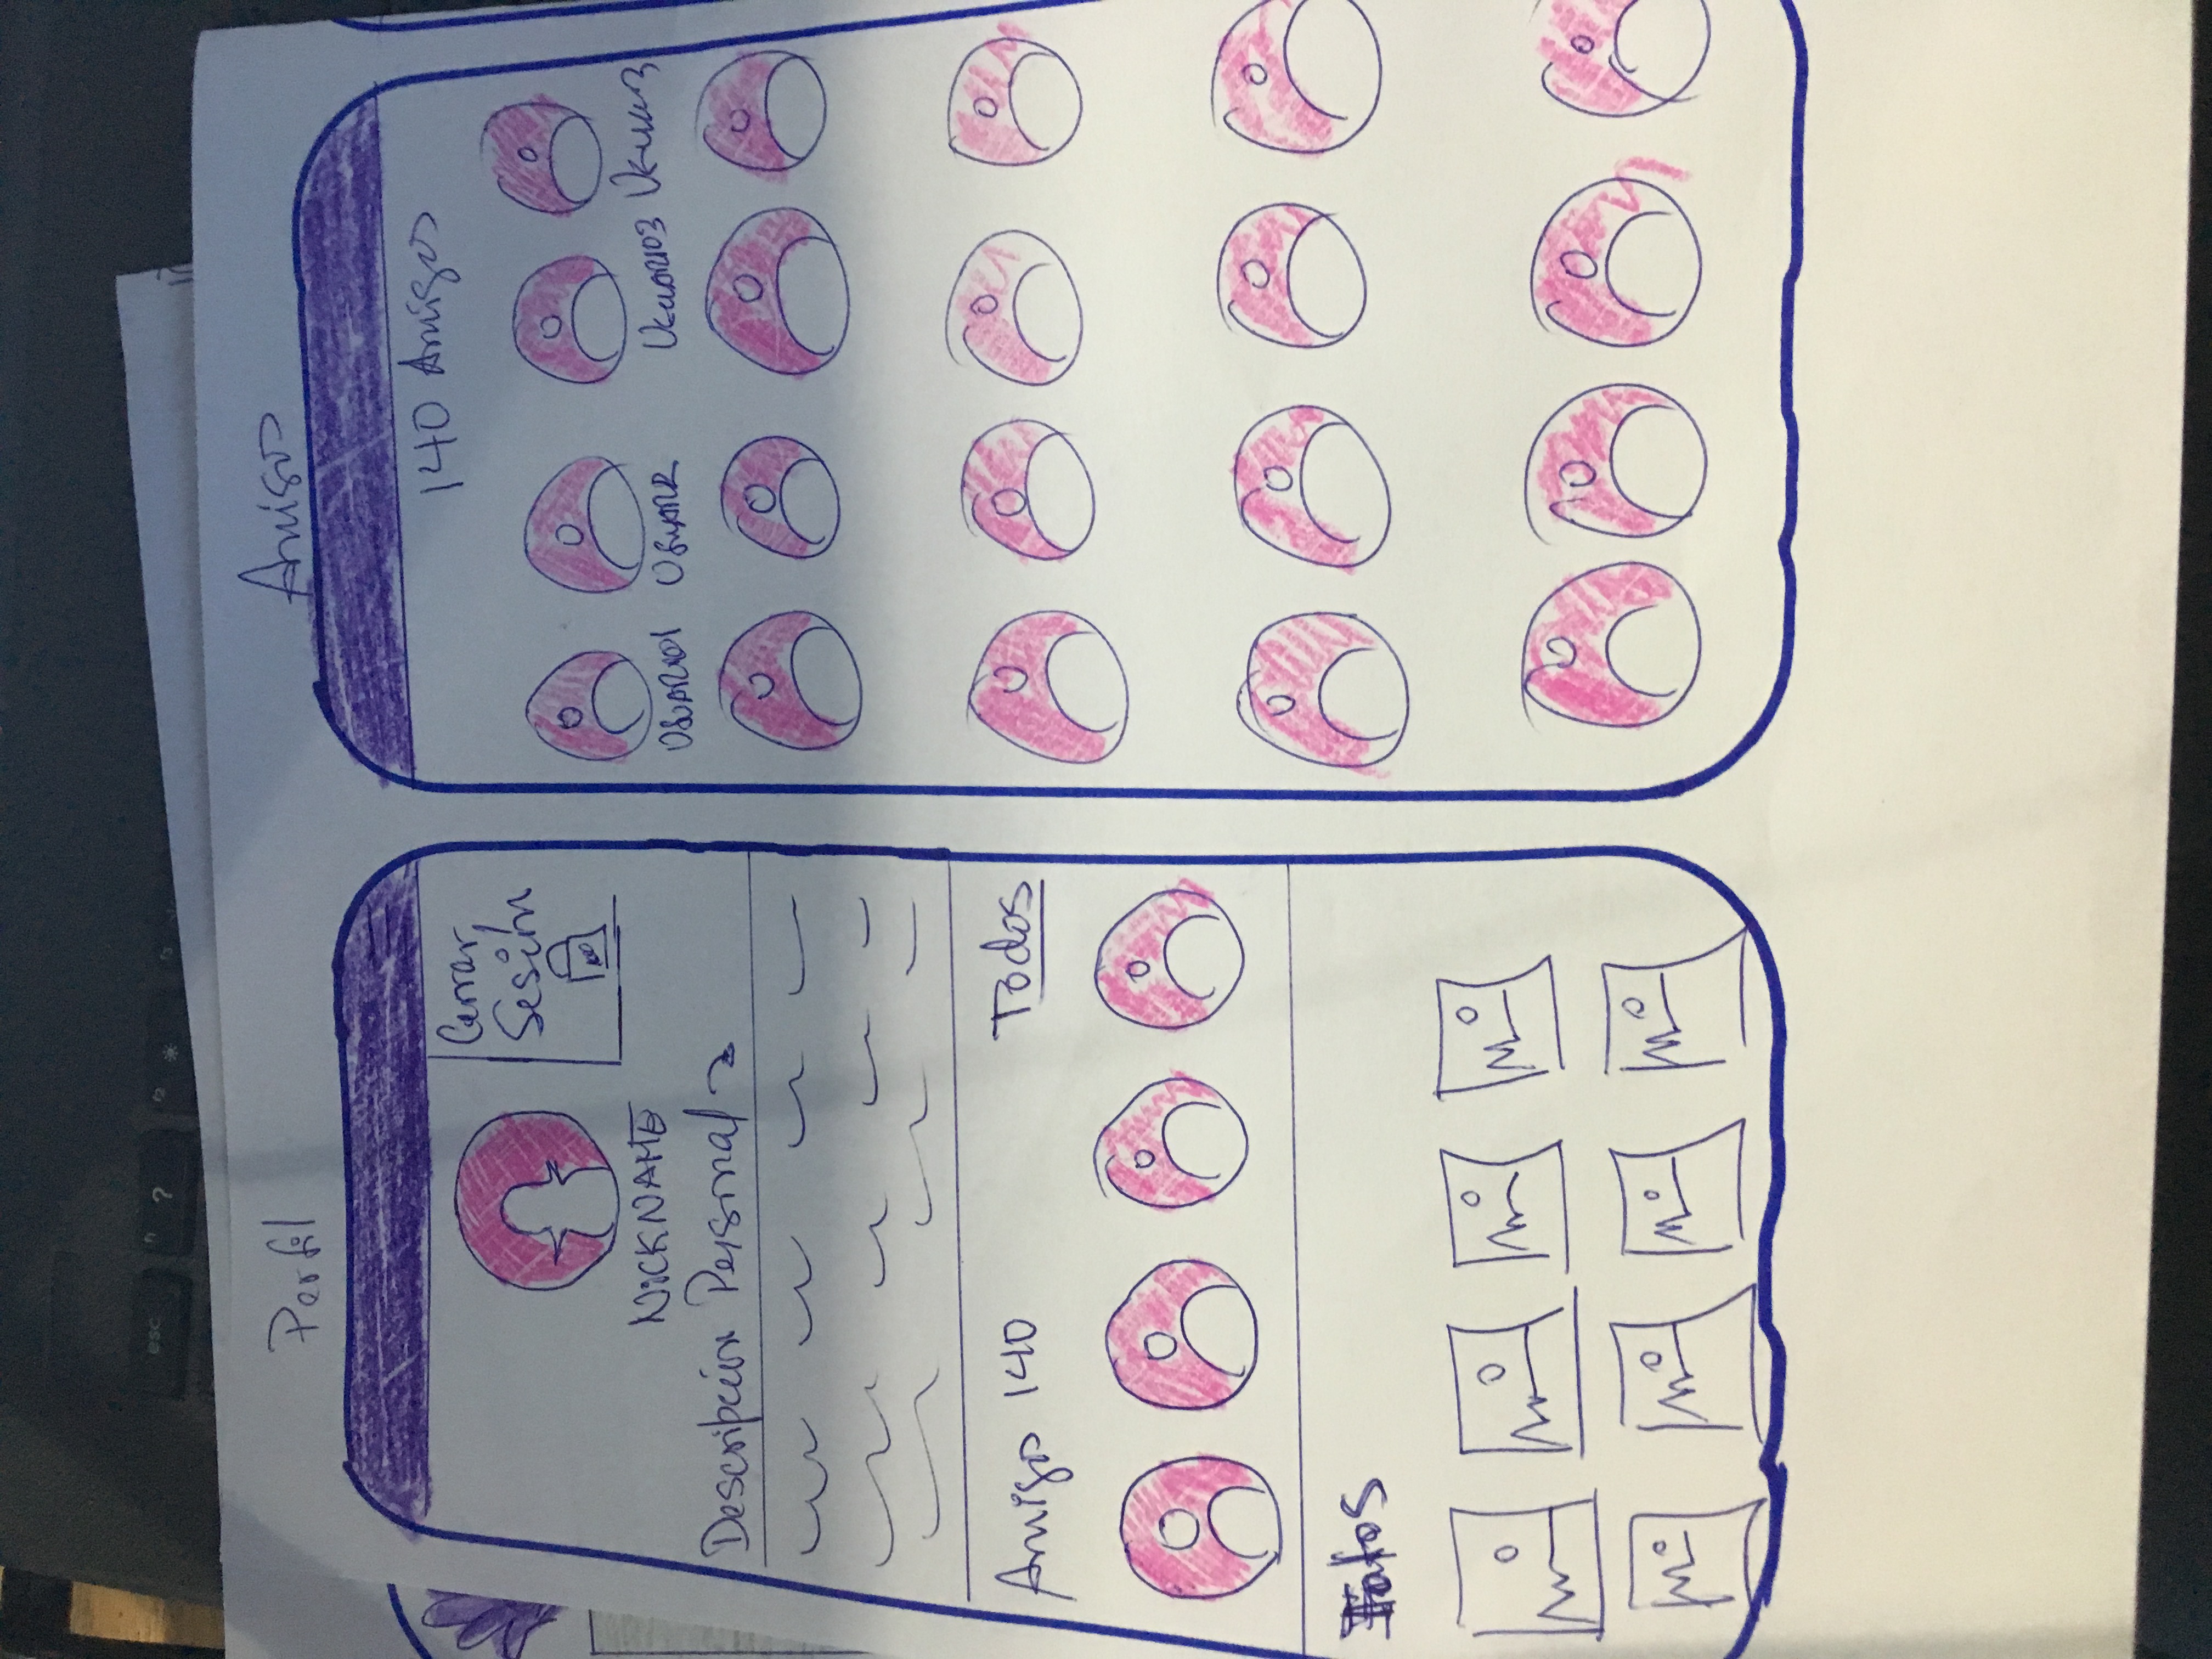 esc
f1 ?
f2
f3
Perfil
Cerrar
Sesión
NICKNAME
Descripción Personal
Amigos 140
Todos
Fotos
Amigos
140 Amigos
USUARIO1
USUAR2
USUARIO3